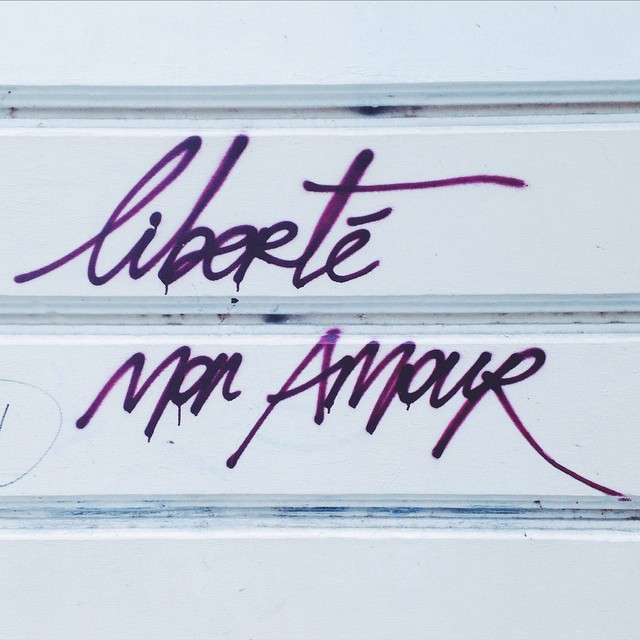 liberté
Mon Amour